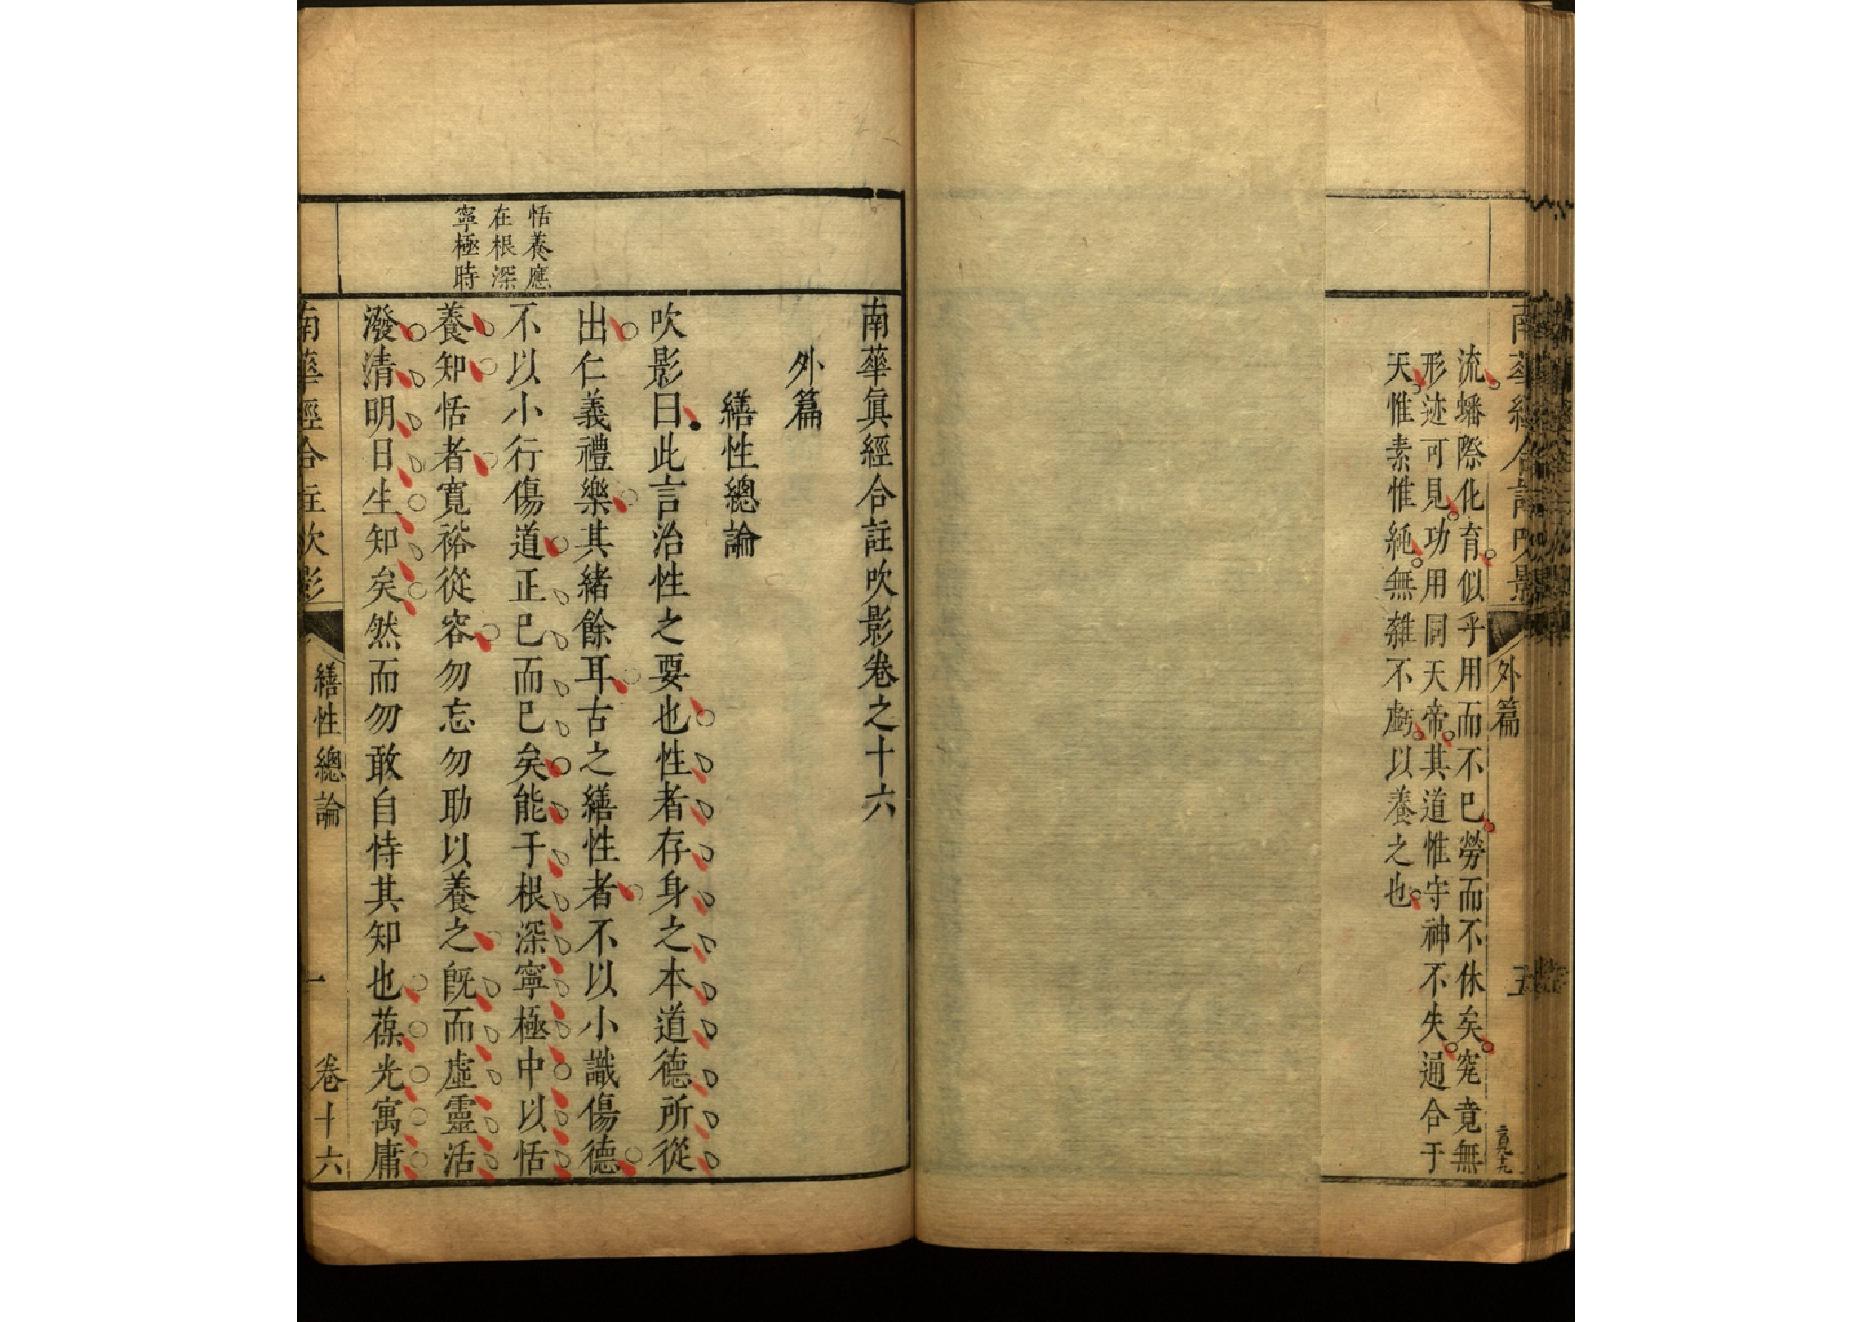 南華經合註吹影
外篇
五
流蟠際化育似乎用而不已勞而不休矣究竟無
形迹可見功用同天帝其道惟守神不失通合于
天惟素惟純無雜不虧以養之也
南華真經合註吹影卷之十六
外篇
繕性總論
吹影曰此言治性之要也性者存身之本道德所從
出仁義禮樂其緒餘耳古之繕性者不以小識傷德
不以小行傷道正已而已矣能于根深寧極中以恬
養知恬者寬裕從容勿忘勿助以養之旣而虛靈活
潑清明日生知矣然而勿敢自恃其知也葆光寓庸
恬養應
在根深
寧極時
南華經合註吹影
繕性總論
一
卷十六